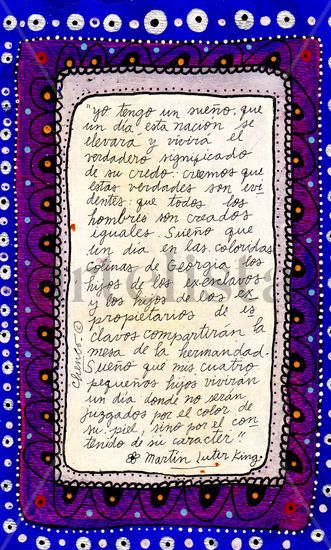 "yo tengo un sueño, que
un día esta nación se
elevará y vivirá el
verdadero significado
de su credo: creemos que
estas verdades son evi
dentes: que todos los
hombres son creados
iguales. Sueño que
un día en las coloridas
colinas de Georgia los
hijos de los exesclavos
y los hijos de los ex
propietarios de es
clavos compartirán la
mesa de la hermandad.
Sueño que mis cuatro
pequeños hijos vivirán
un día donde no serán
juzgados por el color de
su piel, sino por el con
tenido de su caracter."
Martin Luter King.
Chenco. ©
artelista